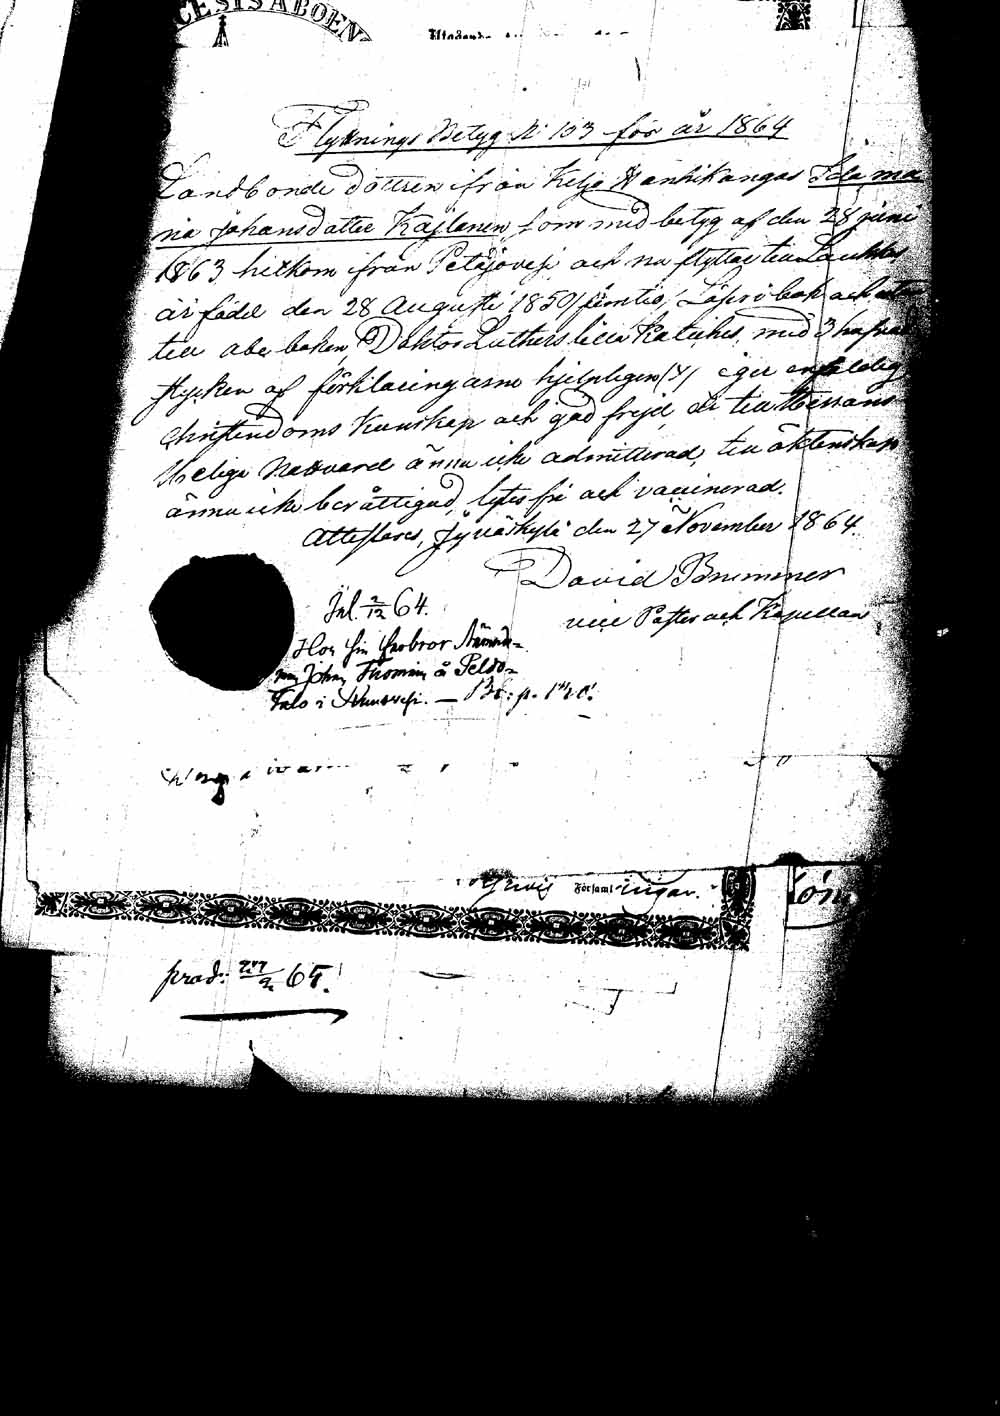 CESIS ABOEN
Flyttnings Betyg N: 153 för år 1864
Landbonde dottren ifrån Keljo Wanhikangas Ida Ma
ria Johansdotter Kajlanen, som med betyg af den 28 juni
1863 hitkom ifrån Petäjävesi och nu flyttar till Laukas
är född den 28 Augusti 1850/femtio/ Läser i bok och
till abc boken, Doktor Luthers lilla Katekes, med 3 hufvud
stycken af förklaringarne hjelpligen (y) eger enfaldig
Christendoms Kunskap och god frejd, är till Herrans
Helige Nattvard ännu icke admitterad, till äktenskap
ännu icke berättigad, lytes fri och vaccinerad.
Attesteras, Jyväskylä den 27 November 1864.
David Brummer
vice Pastor och Kapellan
Inl. 2/12 64.
Hos sin
Johan Tuomin å Peldo-
Talo i
Församl
prod: 27/2 65!